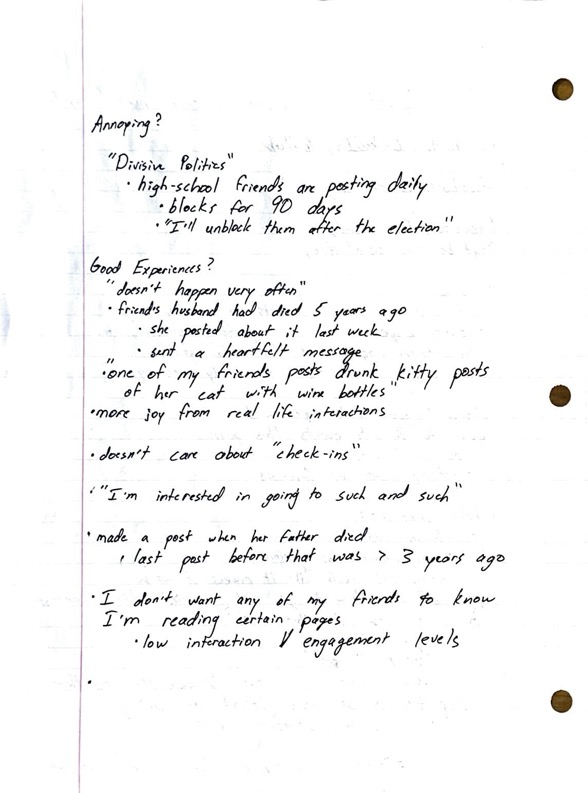 Annoying?
"Divisive Politics"
• high-school friends are posting daily
• blocks for 90 days
• "I'll unblock them after the election"
Good Experiences?
"doesn't happen very often"
• friend's husband had died 5 years ago
• she posted about it last week
• sent a heartfelt message
"• one of my friends posts drunk kitty posts
of her cat with wine bottles"
• more joy from real life interactions
• doesn't care about "check-ins"
• "I'm interested in going to such and such"
• made a post when her father died
• last post before that was > 3 years ago
• I don't want any of my friends to know
I'm reading certain pages
• low interaction / engagement levels
•